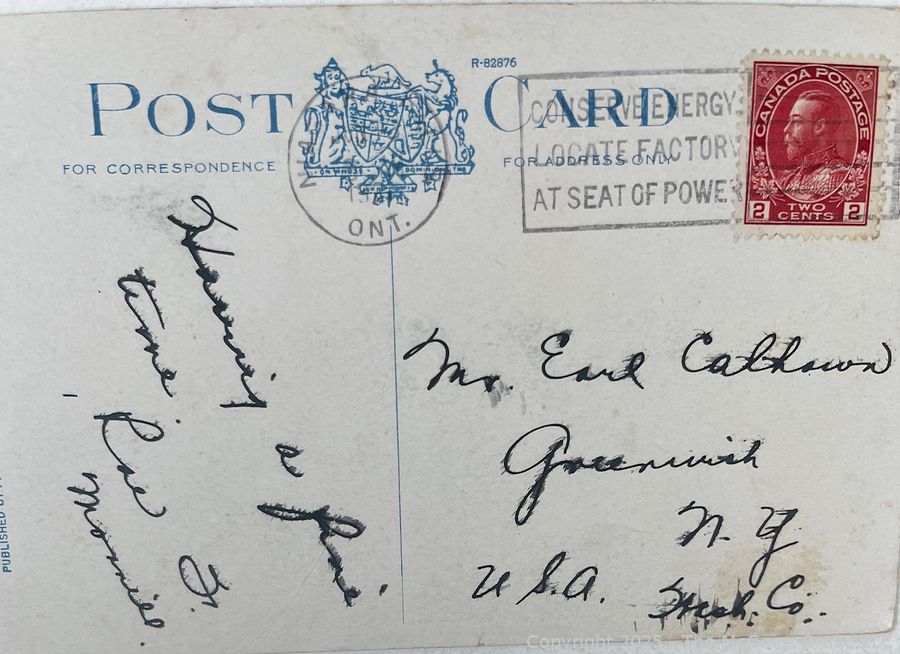 POST CARD
R-82876
FOR CORRESPONDENCE
FOR ADDRESS ONLY
ONT.
CONSERVE ENERGY
LOCATE FACTORY
AT SEAT OF POWER
CANADA POSTAGE
2 TWO CENTS 2
Having a fine
time.
Mr. Earl Calhoun
Greenwich
N. Y
U.S.A. Wash. Co.
PUBLISHED BY
Copyright 2025